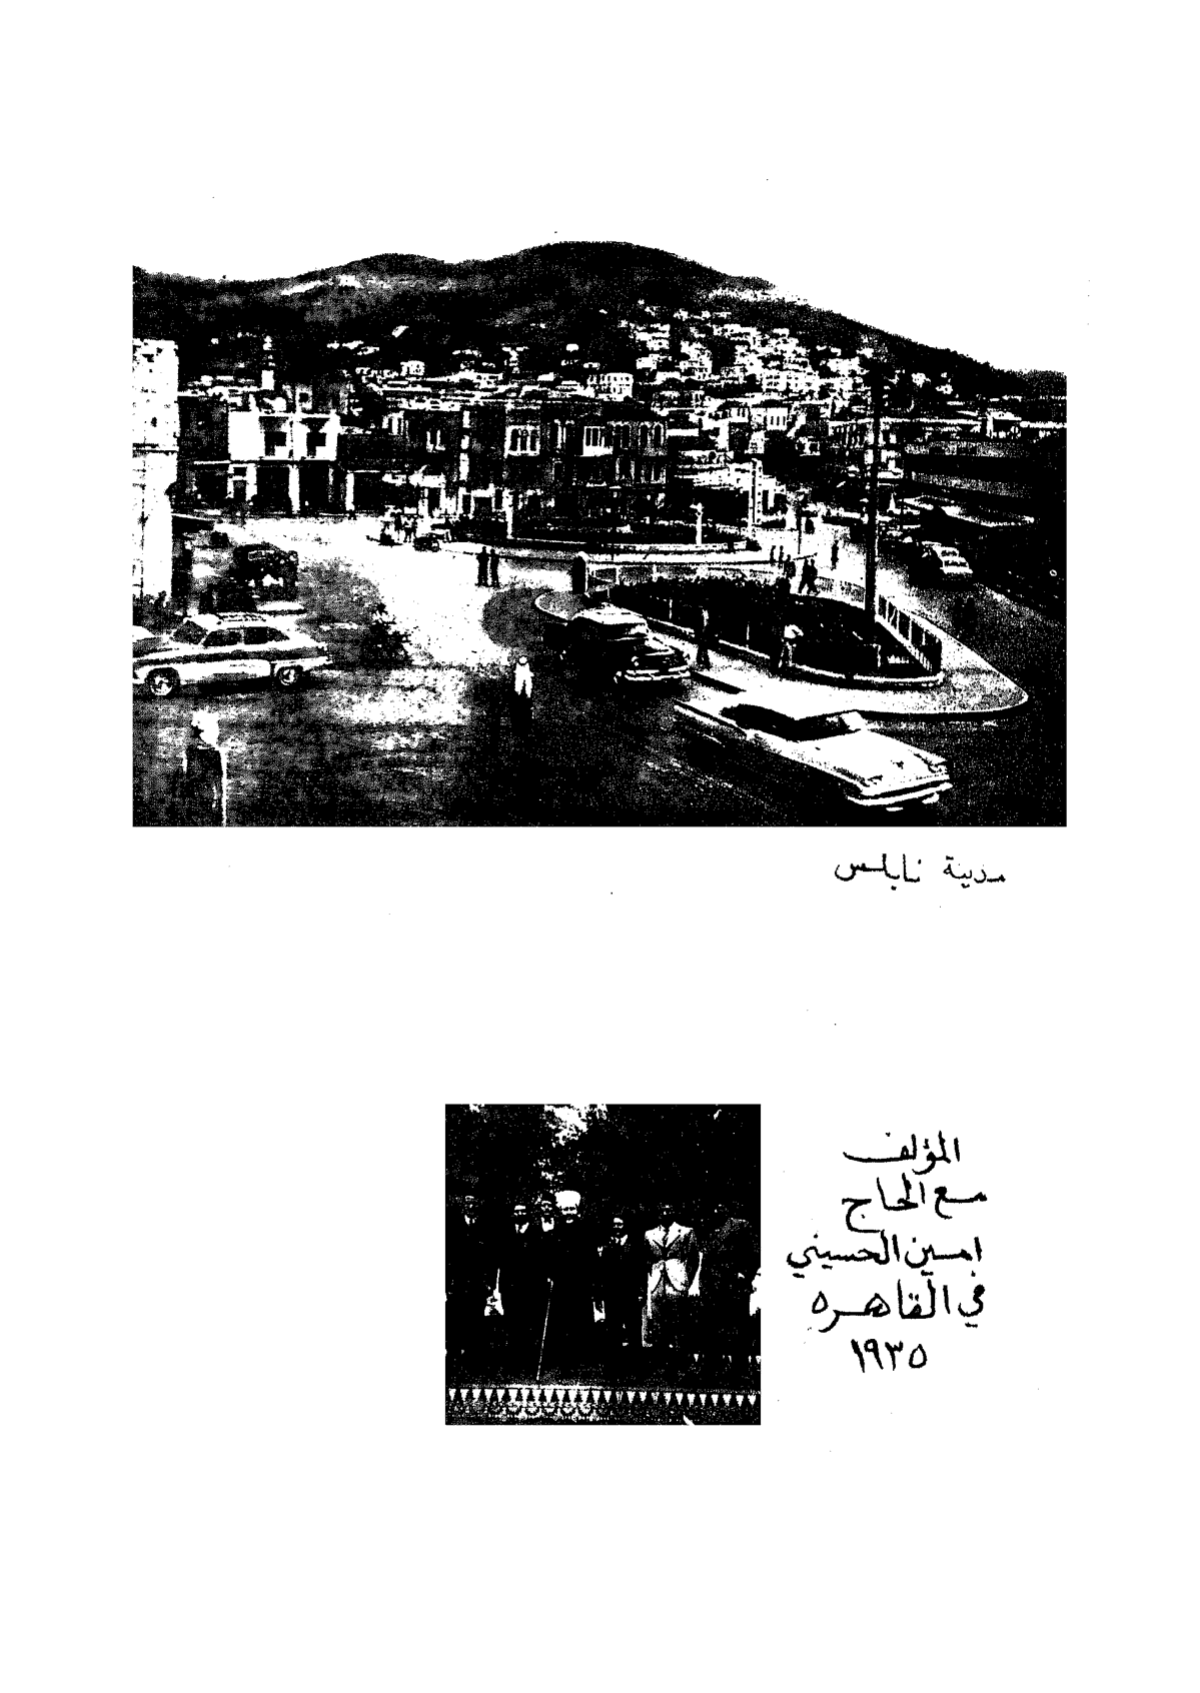 مدينة نابلس
المؤلف
مع الحاج
امين الحسيني
في القاهره
١٩٣٥